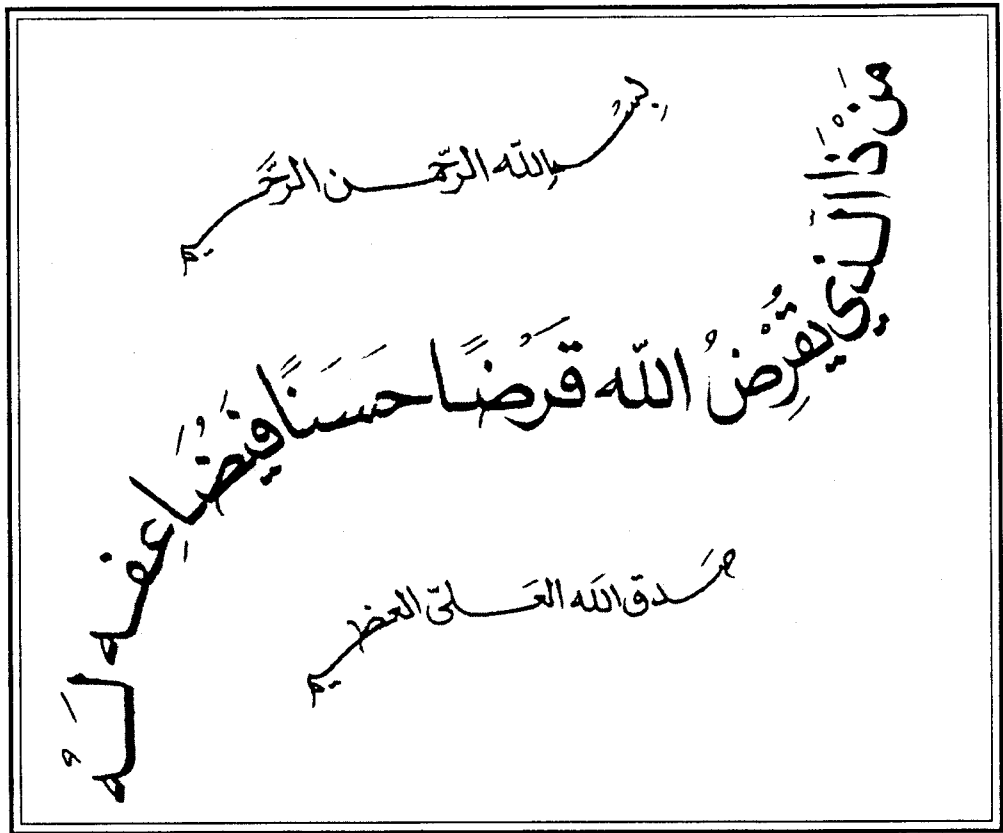 بسم الله الرحمن الرحيم
مَن ذَا الَّذِي يُقْرِضُ اللّٰه قَرْضًا حَسَنًا فَيُضَاعِفه لَهُ
صَدق الله العَلىّ العضيم